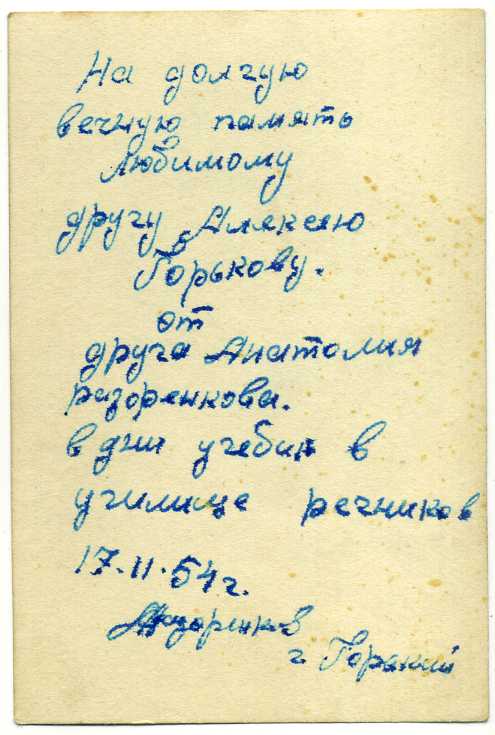 На долгую
вечную память
любимому
другу Алексею
Горькову.
от
друга Анатолия
разоренкова.
в дни учебы в
училище речников
17.11.54г.
АРазоренков
г. Горький